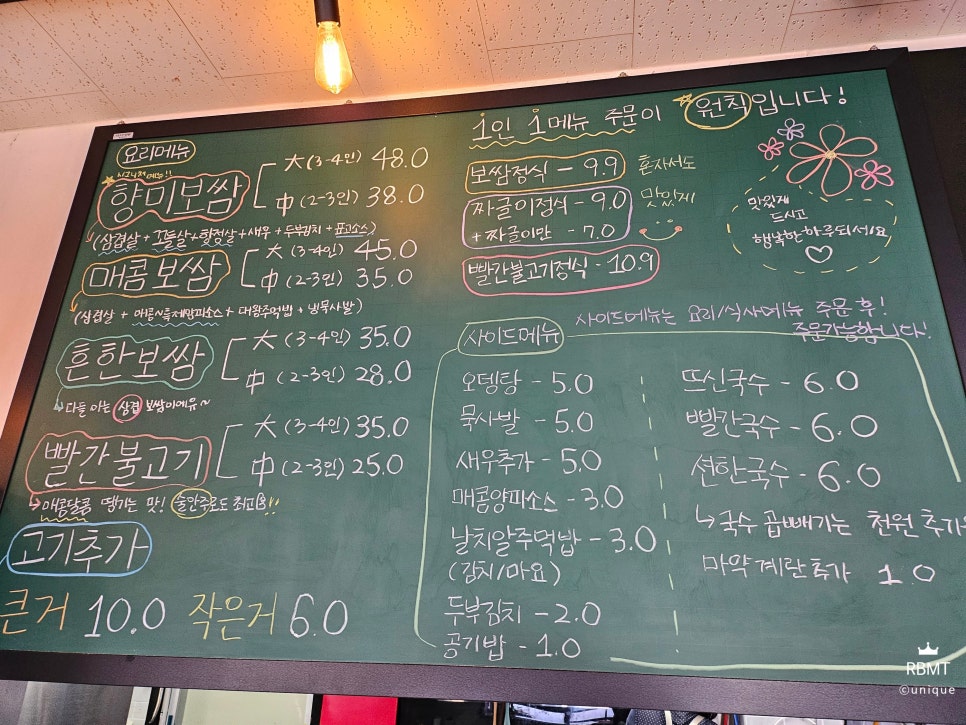 요리메뉴
시그니처메뉴!!
향미보쌈
大 (3-4인) 48.0
中 (2-3인) 38.0
(삼겹살 + 꼬들살 + 항정살 + 새우 + 두부김치 + 표고소스)
매콤보쌈
大 (3-4인) 45.0
中 (2-3인) 35.0
(삼겹살 + 매콤~특제맘파소스 + 대왕주먹밥 + 냉묵사발)
흔한보쌈
大 (3-4인) 35.0
中 (2-3인) 28.0
다들 아는 삼겹 보쌈이에유~
빨간불고기
大 (3-4인) 35.0
中 (2-3인) 25.0
매콤달콤 땡기는 맛! 술안주로도 최고!!
고기추가
큰거 10.0 작은거 6.0
1인 1메뉴 주문이 원칙입니다!
보쌈정식 - 9.9
짜글이정식 - 9.0
+ 짜글이만 - 7.0
빨간불고기정식 - 10.9
혼자서도
맛있게
맛있게
드시고
행복한하루되세요
사이드메뉴는 요리/식사메뉴 주문 후!
주문가능합니다!
사이드메뉴
오뎅탕 - 5.0
묵사발 - 5.0
새우추가 - 5.0
매콤양파소스 - 3.0
날치알주먹밥 - 3.0
(김치/마요)
두부김치 - 2.0
공기밥 - 1.0
뜨신국수 - 6.0
빨간국수 - 6.0
션한국수 - 6.0
국수 곱빼기는 천원 추가
마약계란추가 1.0
RBMT
©unique